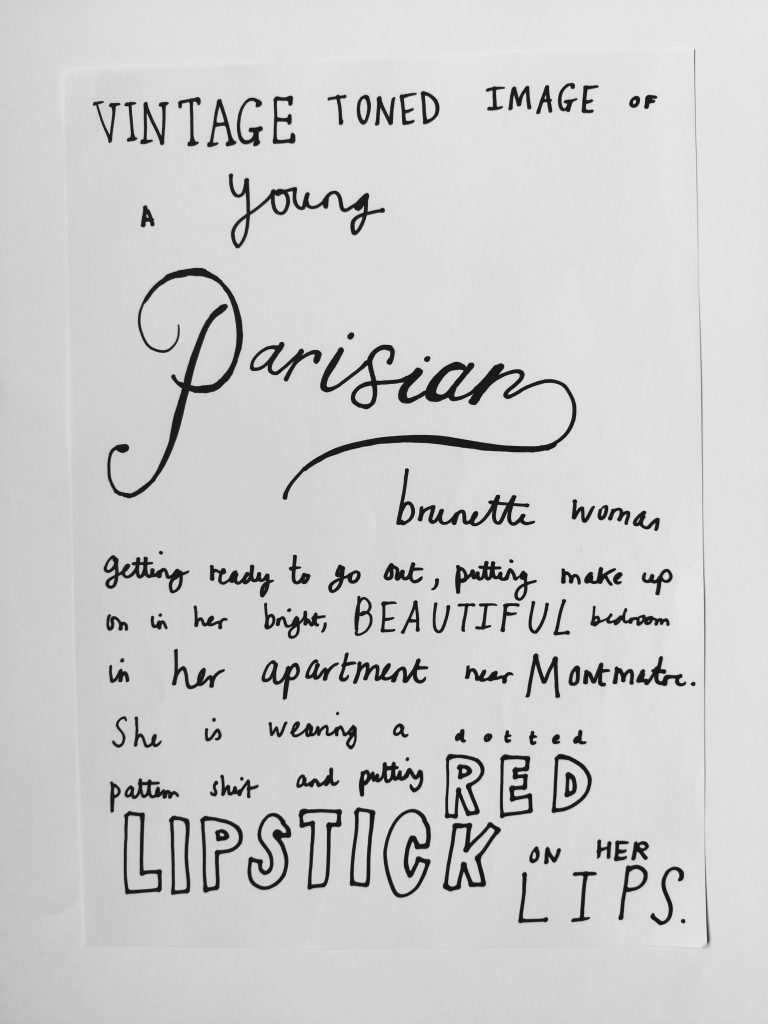 VINTAGE TONED IMAGE OF
A Young
Parisian
brunette woman
getting ready to go out, putting make up
on in her bright, BEAUTIFUL bedroom
in her apartment near Montmatre.
She is wearing a dotted
pattern shirt and putting RED
LIPSTICK ON HER
LIPS.